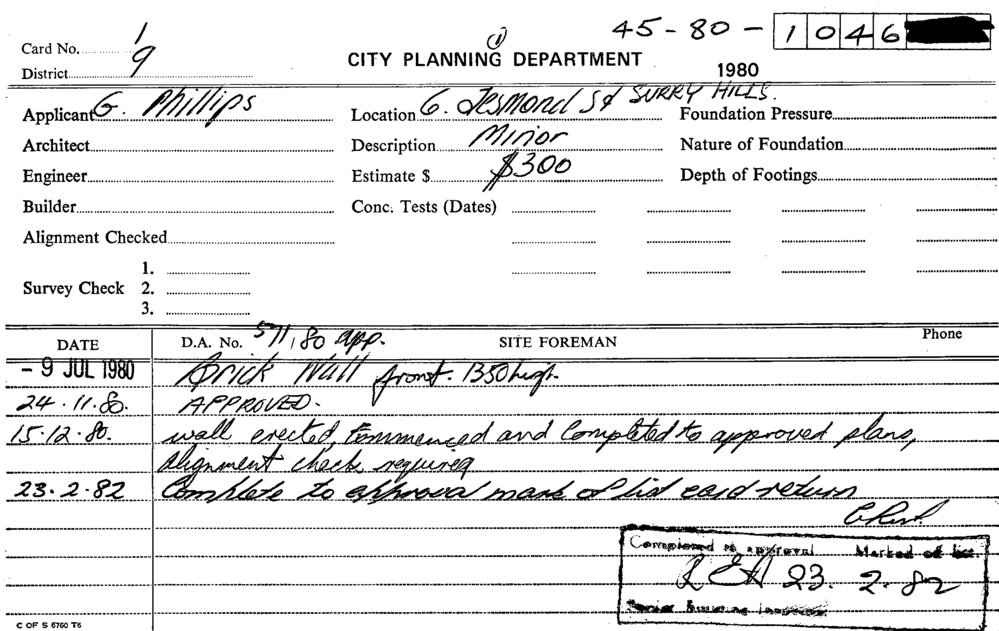 45-80-1046
Card No. 1
(1)
CITY PLANNING DEPARTMENT
District 9
1980
Applicant G. Phillips Location 6. Tesmond St SURRY HILLS. Foundation Pressure
Architect Description Minor Nature of Foundation
Engineer Estimate $ $300 Depth of Footings
Builder Conc. Tests (Dates)
Alignment Checked
1.
Survey Check 2.
3.
DATE D.A. No. 571,80 app. SITE FOREMAN Phone
- 9 JUL 1980 Brick Wall front. 1350 high.
24.11.80. APPROVED.
15.12.80. wall erected, Commenced and Completed to approved plans,
alignment check required
23.2.82 Complete to approval mark of list card return
Completed to approval Marked of list.
23. 2.82
Senior Building Inspector
C OF S 6760 T6